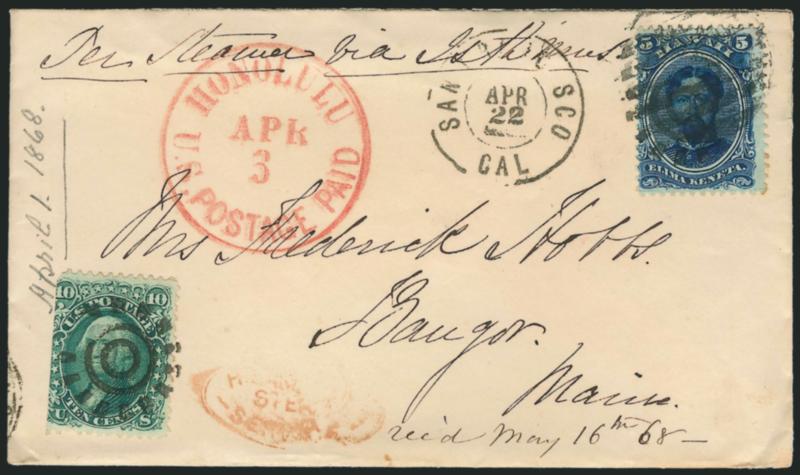 Per Steamer via Isthmus
HONOLULU
APR
3
U.S. POSTAGE PAID
SAN SCO
APR
22
CAL
5 HAWAII 5
ELIMA KENETA.
April 1. 1868.
Mrs Frederick Hobbs.
Bangor.
Maine.
recd May 16th 68 —
10 10
U.S. POSTAGE
TEN CENTS
U S